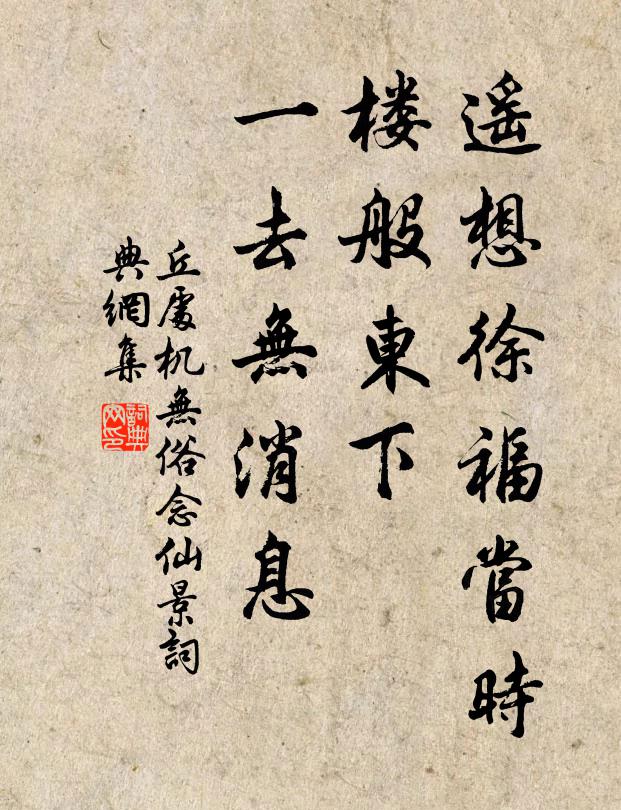 遥想徐福當時
楼般東下
一去無消息
丘處机無俗念仙景詞
典網集
詞典
网印